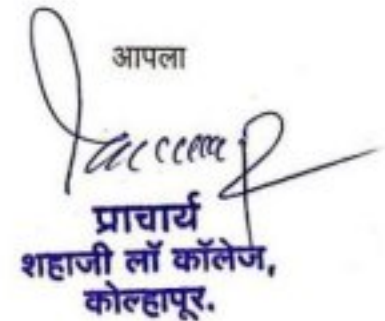 आपला
प्राचार्य
शहाजी लॉ कॉलेज,
कोल्हापूर.